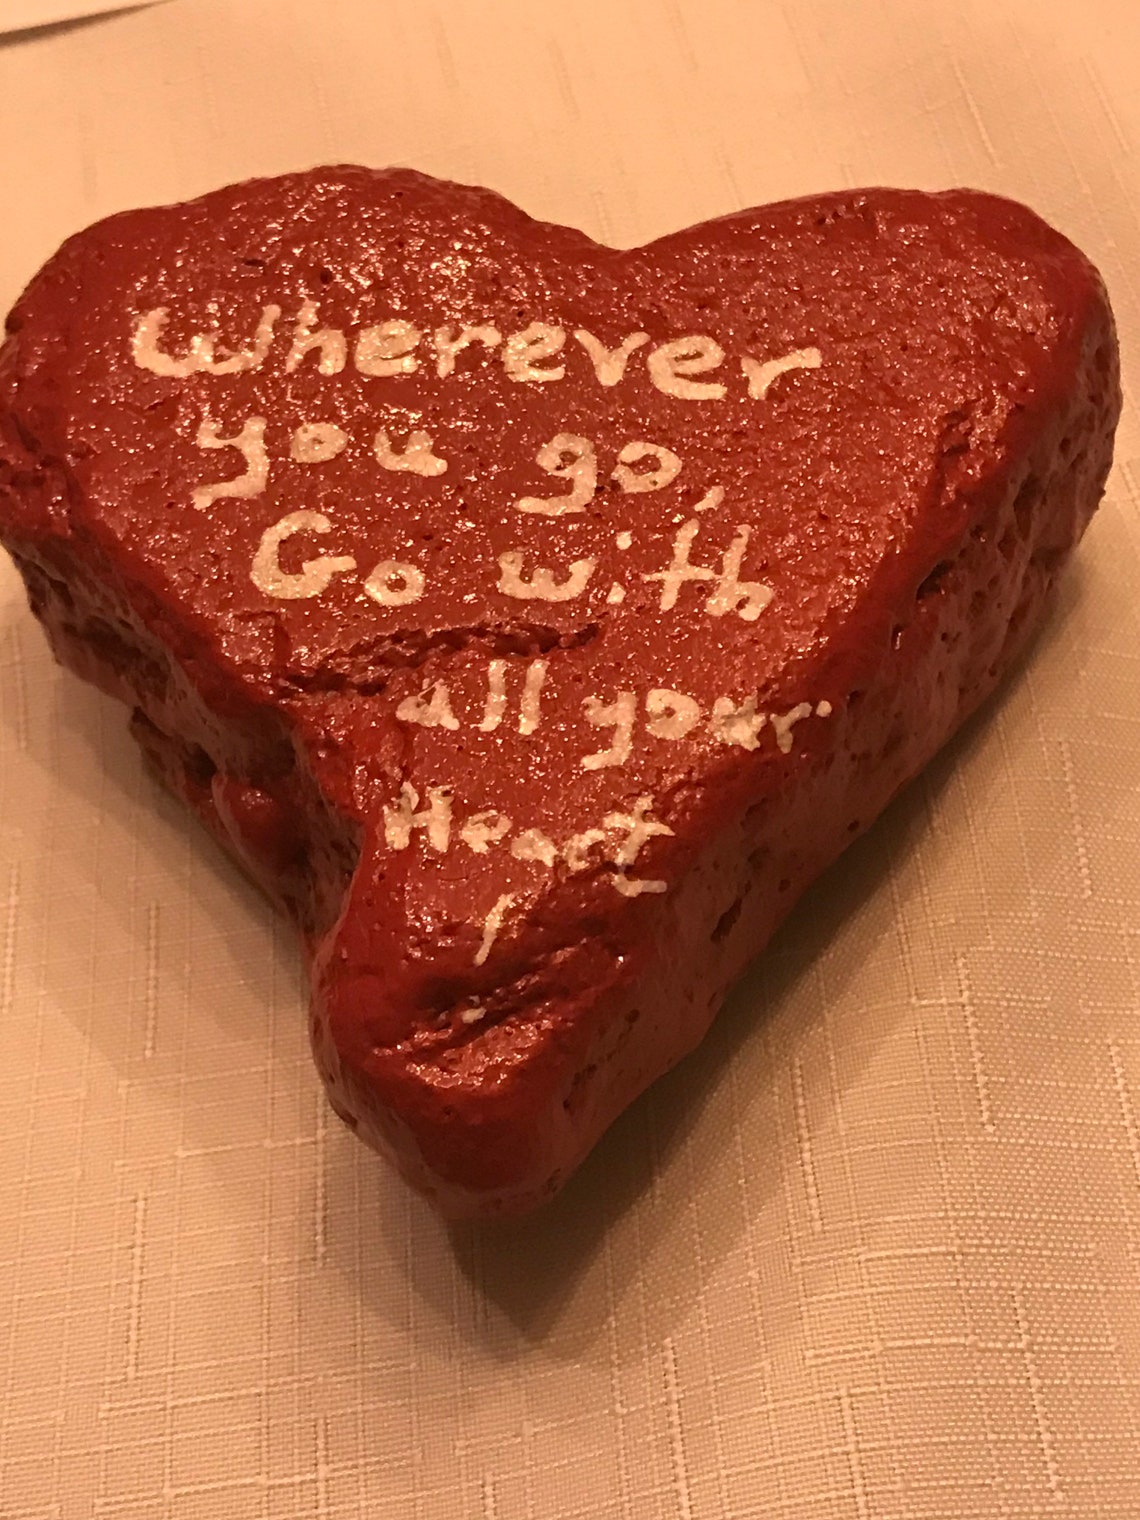 Wherever
you go,
Go with
all your
Heart!